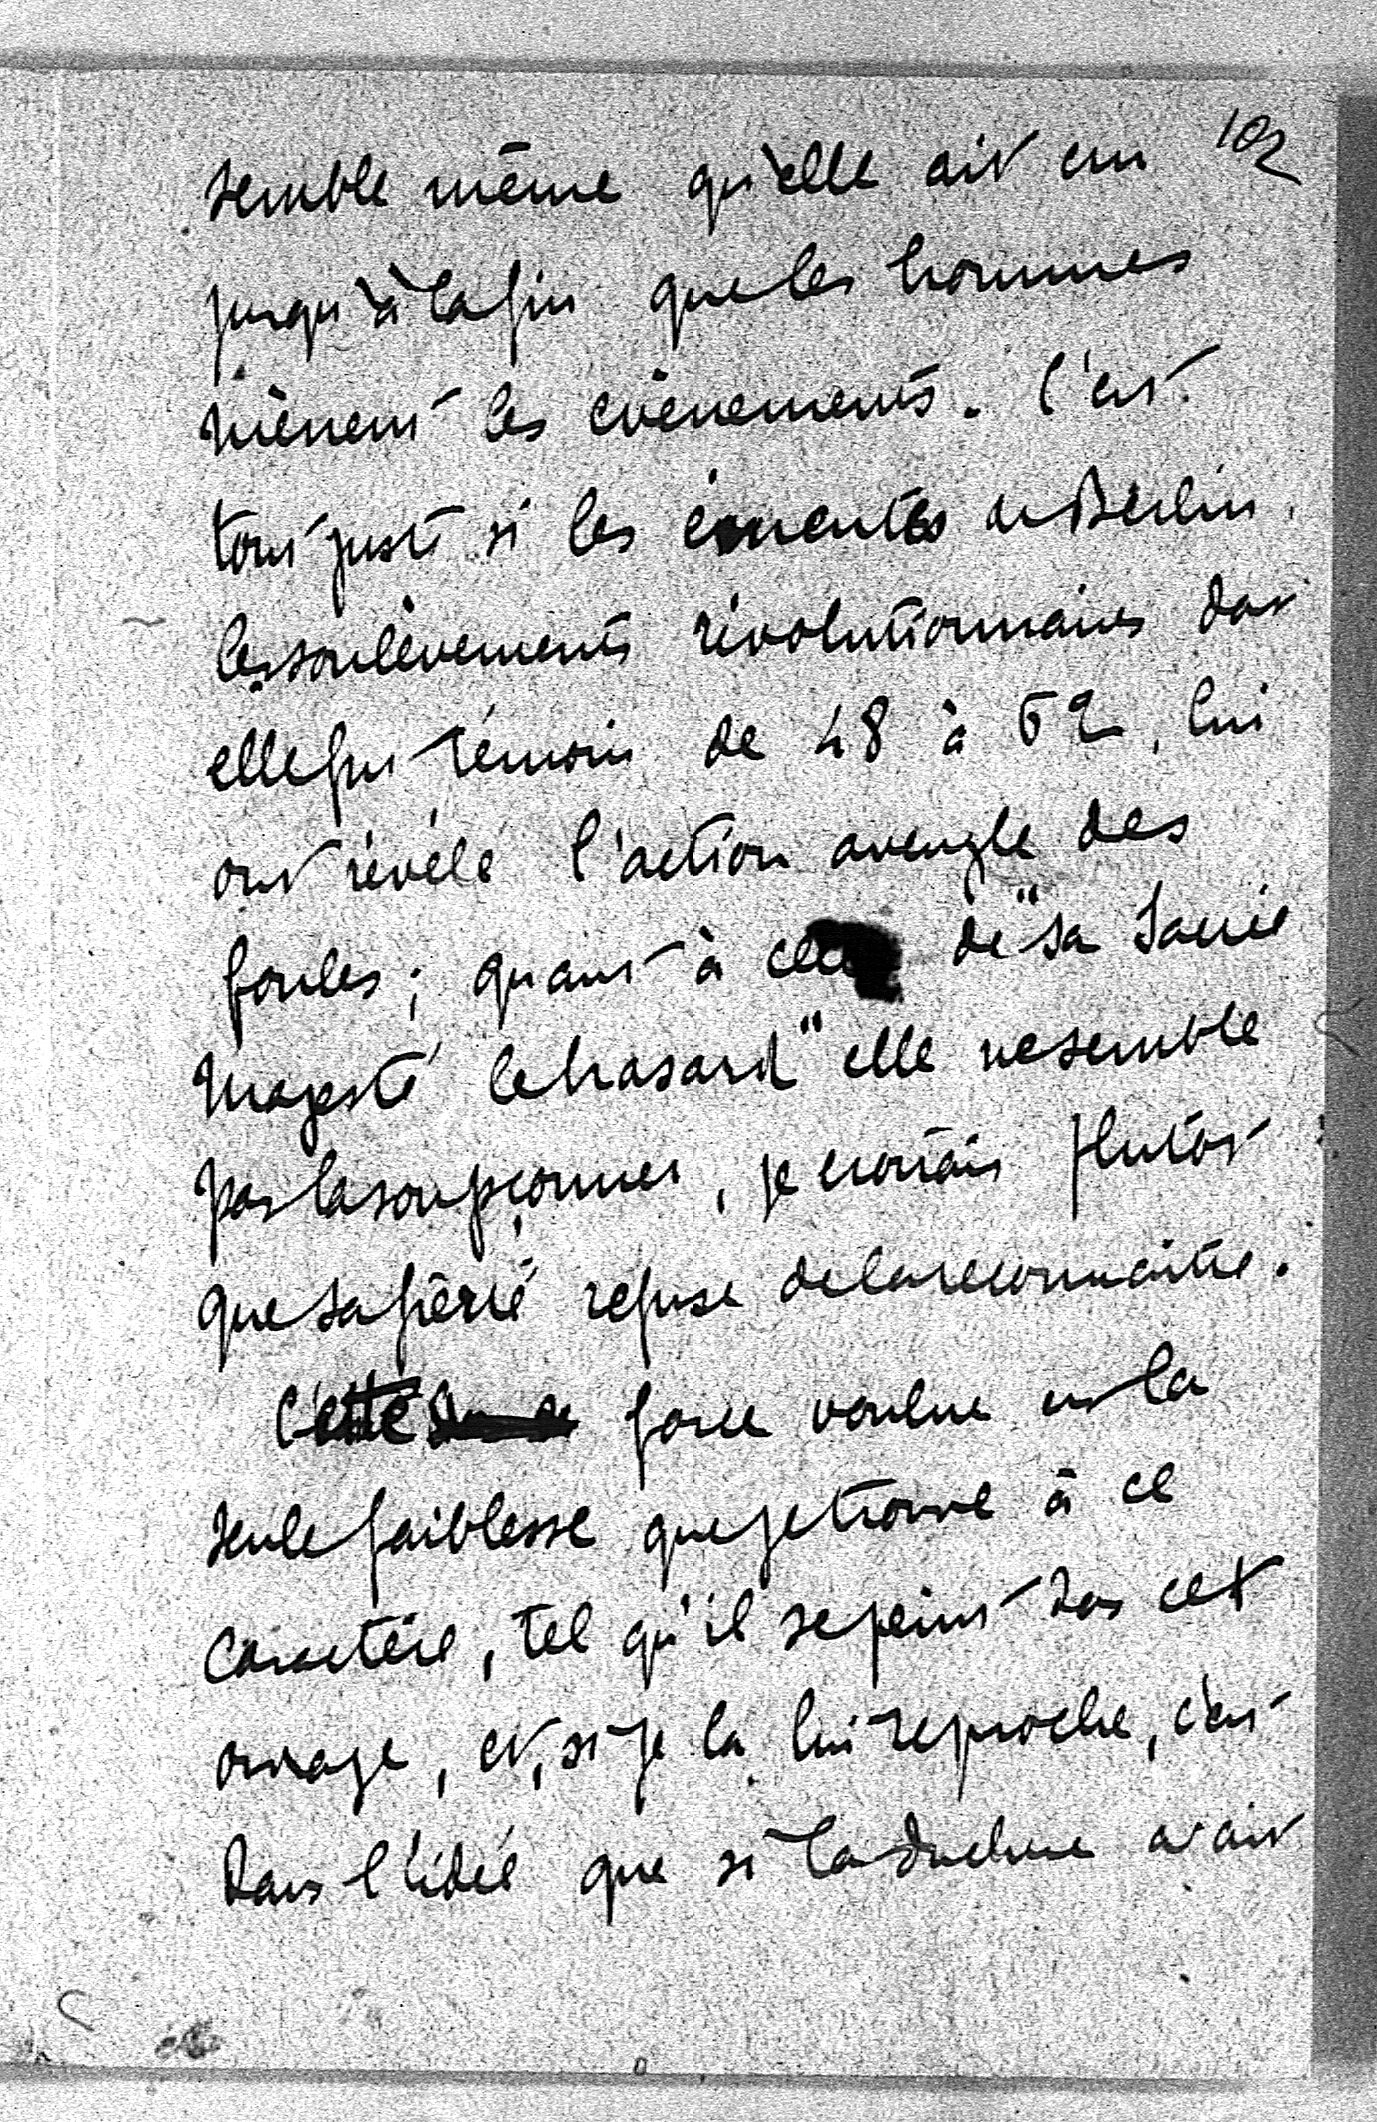 102
semble même qu'elle ait cru
jusqu'à la fin que les hommes
mènent les évènements. C'est
tout juste si les émeutes de Berlin,
les soulèvements révolutionnaires dont
elle fut témoin de 48 à 52, lui
ont révélé l'action aveugle des
foules; quant à celle de "sa Sacrée
Majesté le hasard" elle ne semble
pas la soupçonner, je croirais plutôt
que sa fierté refuse de la reconnaître.
Cette force voulue est la
seule faiblesse que je trouve à ce
caractère, tel qu'il se peint dans cet
ouvrage, et, si je la lui reproche, c'est
dans l'idée que si la duchesse avait